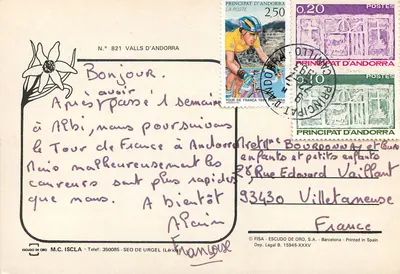 N.° 821 VALLS D'ANDORRA
Bonjour.
avoir
Après passé 1 semaine
à Albi, nous poursuivons
le Tour de France à Andorre
Mais malheureusement les
coureurs sont plus rapides
que nous. A bientôt
Alain
Françoise
PRINCIPAT D'ANDORRA
LA POSTE
2,50
TOUR DE FRANCE
0,20
PRINCIPAT D'ANDORRA
PRINCIPAT D'ANDORRA
Mr et Mme BOURDONNAY et leurs
enfants et petits enfants
28 Rue Edouard Vaillant
93430 Villetaneuse
France
ESCUDO DE ORO
M.C. ISCLA - Telef. 350085 - SEO DE URGEL
© FISA - ESCUDO DE ORO, S.A. - Barcelona - Printed in Spain
Dep. Legal B. 15845-XXXV